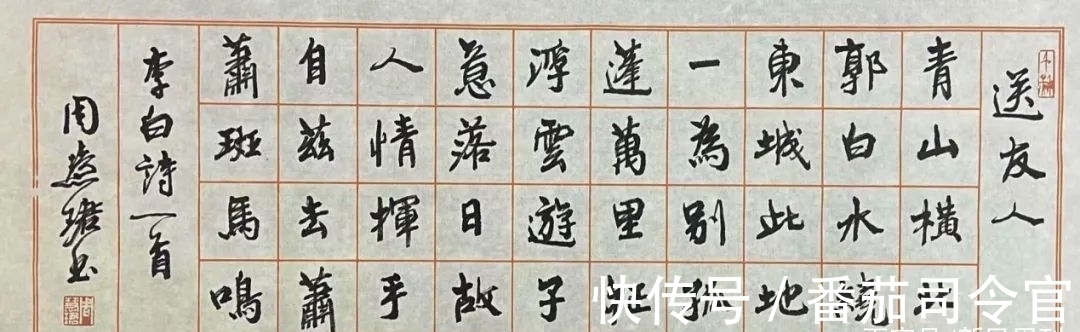 送友人
青山橫北
郭白水繞
東城此地
一為別孤
蓬萬里征
浮雲遊子
意落日故
人情揮手
自茲去蕭
蕭班馬鳴
李白詩一首
周慧珺书
快传号 / 番茄司令官